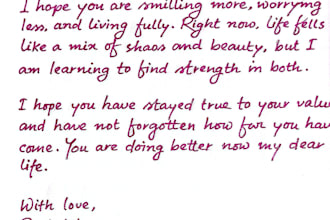 I hope you are smilling more, worryng
less, and living fully. Right now, life fells
like a mix of shaos and beauty, but I
am learning to find strength in both.
I hope you have stayed true to your valu
and have not forgotten how far you hav
come. You are doing better now my dear
life.
With love,